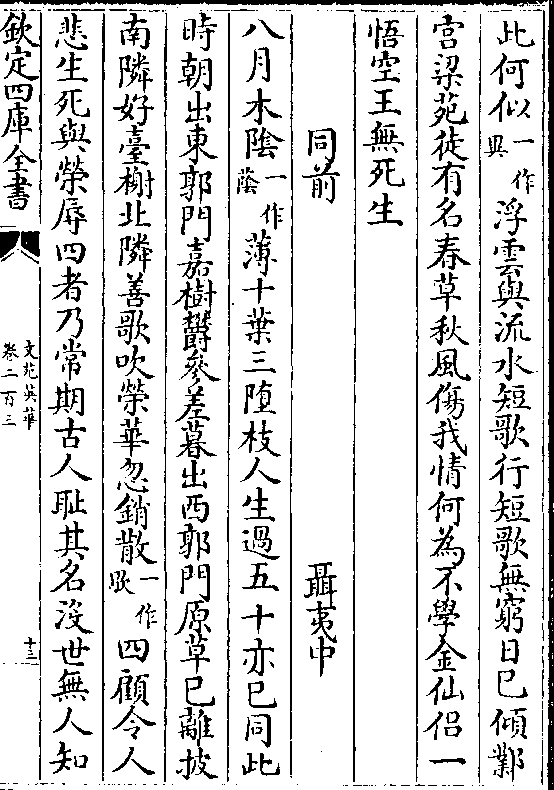 此何似一作與浮雲與流水短歌行短歌無窮日已傾鄴
宮梁苑徒有名春草秋風傷我情何為不學金仙侶一
悟空王無死生
同前 聶夷中
八月木陰一作蔭薄十葉三墮枝人生過五十亦已同此
時朝出東郭門嘉樹鬱參差暮出西郭門原草已離披
南隣好臺榭北隣善歌吹榮華忽銷散一作歇四顧令人
悲生死與榮辱四者乃常期古人恥其名沒世無人知
欽定四庫全書
文苑英華
卷二百三
十三